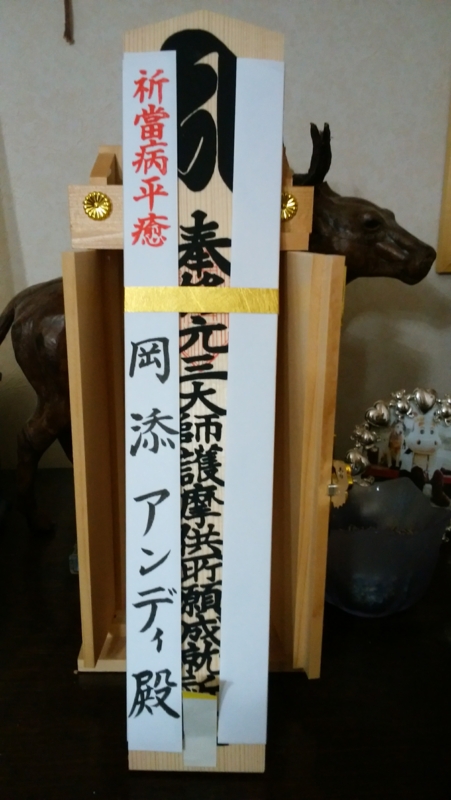 奉
元三大師護摩供所願成就
祈當病平癒
岡添アンディ殿